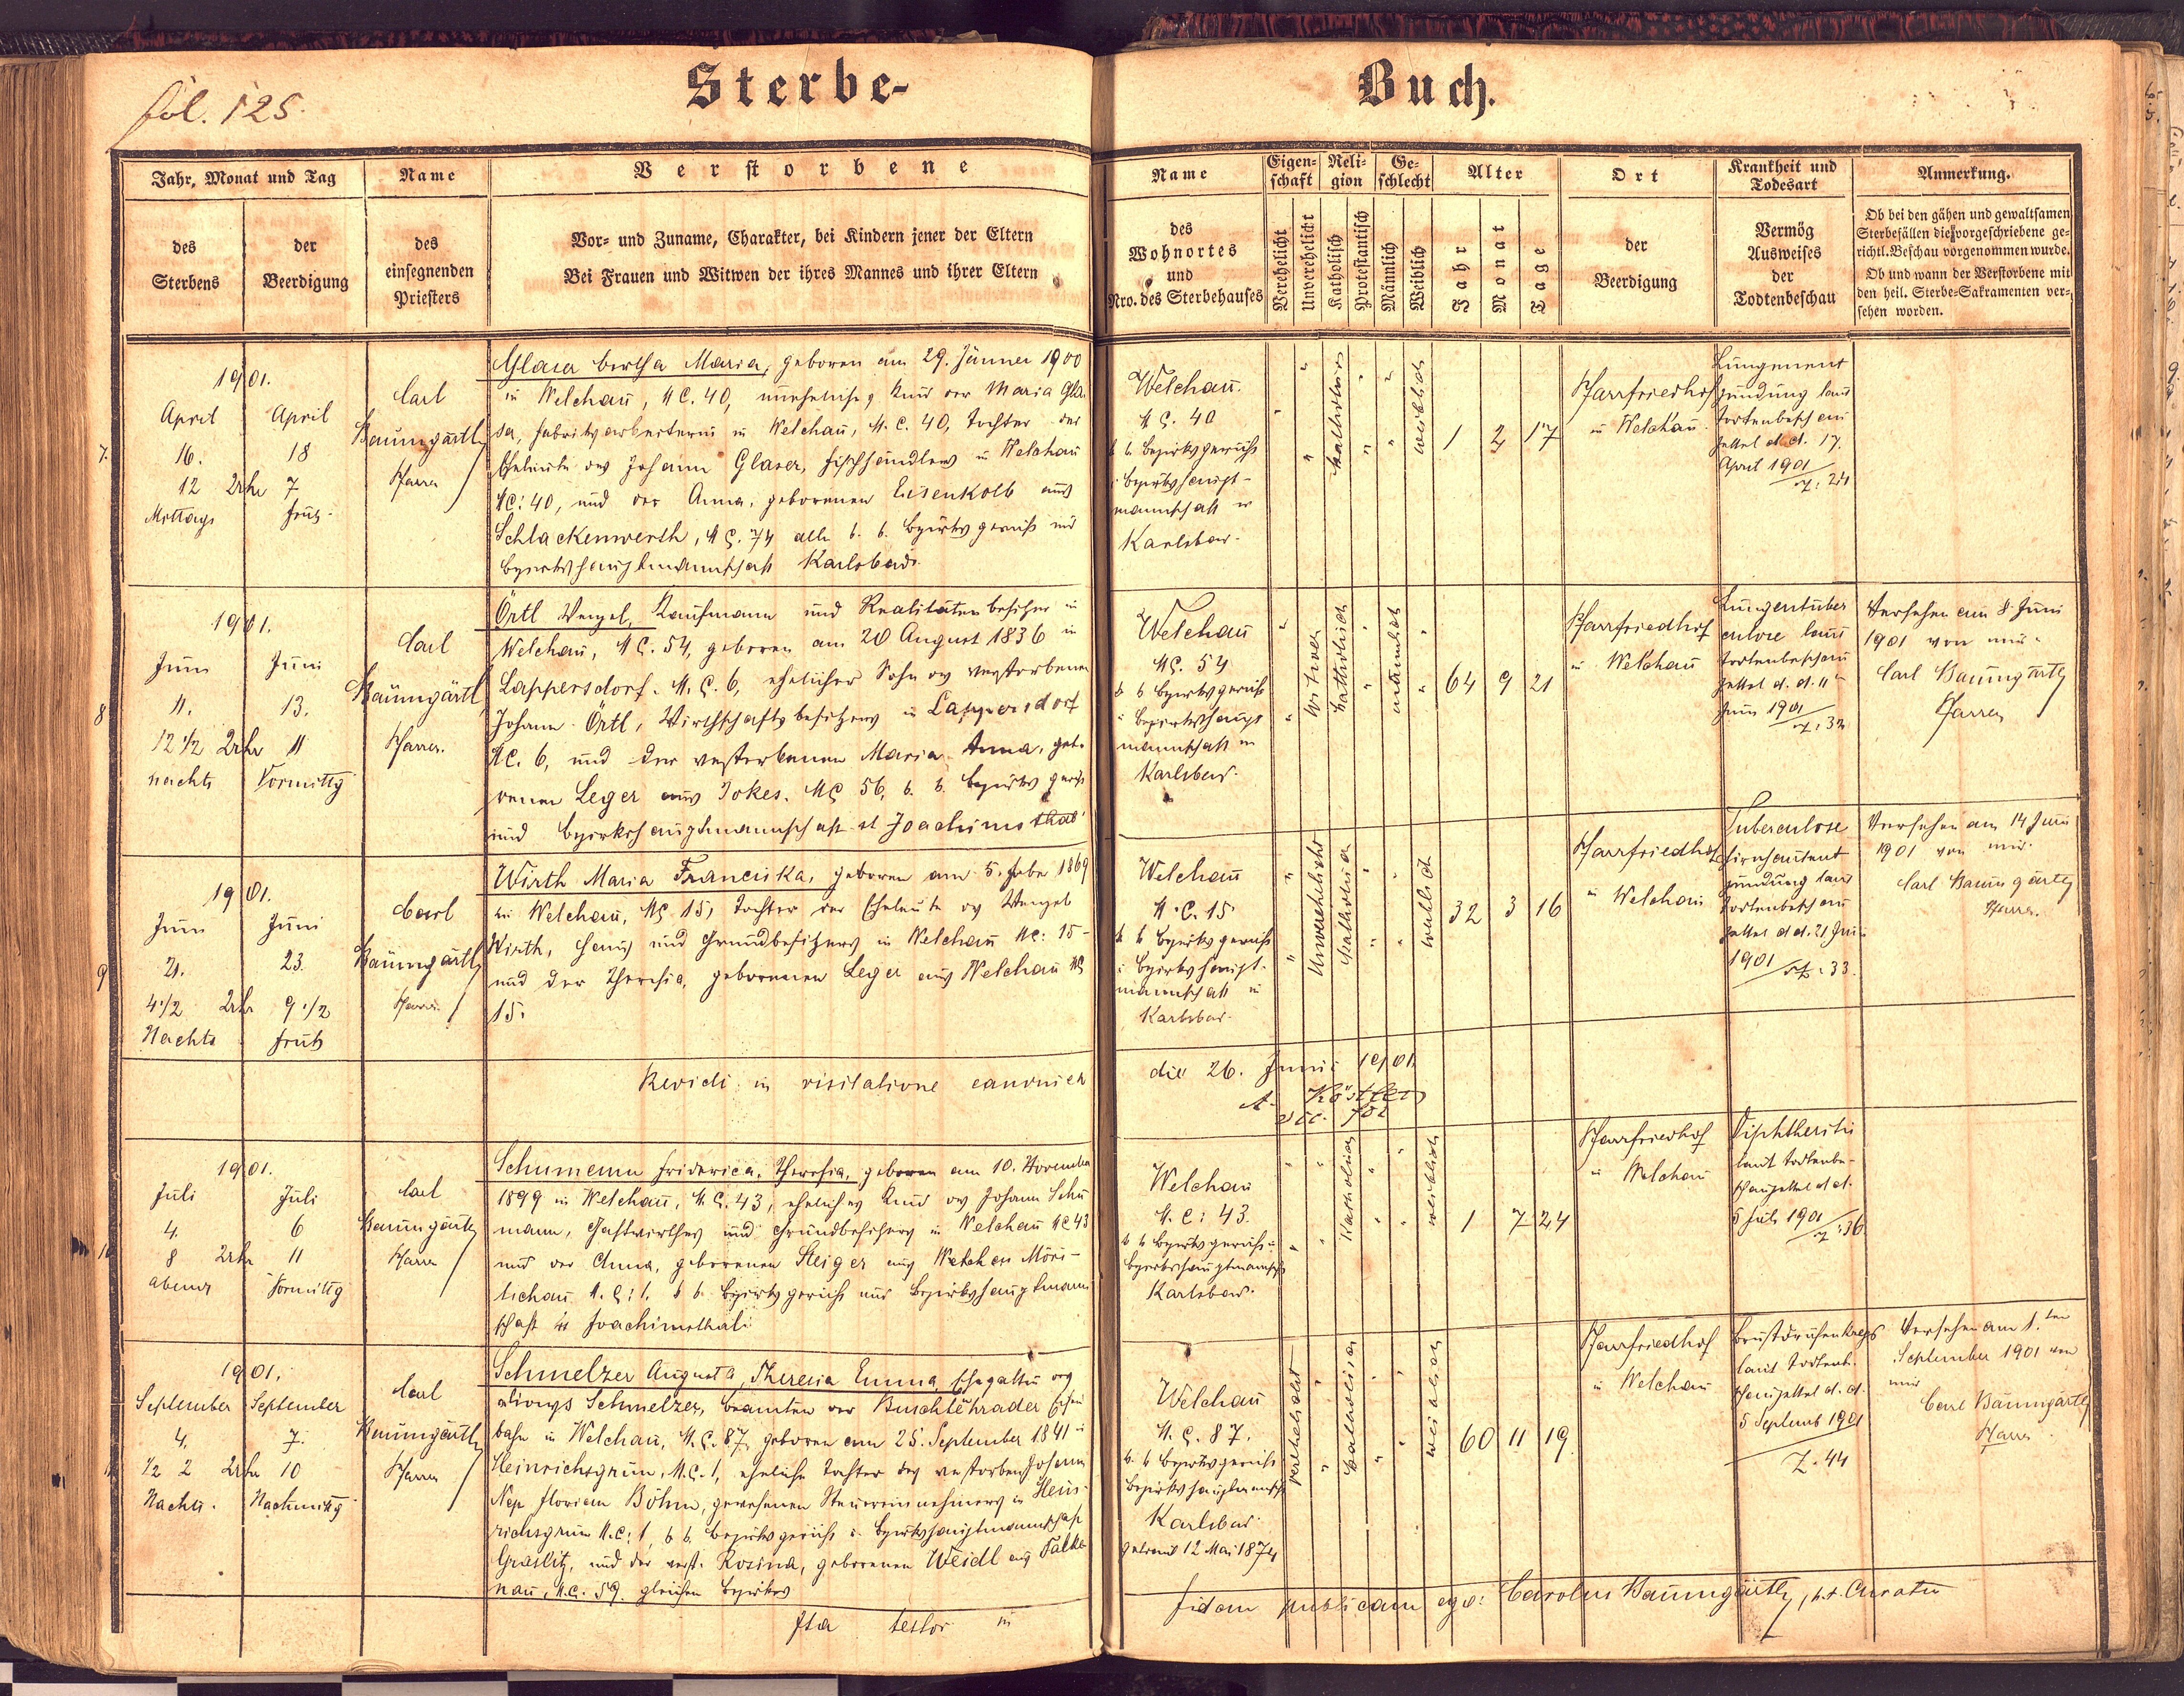 fol. 125.
Sterbe-
Jahr, Monat und Tag
des
Sterbens
der
Beerdigung
Name
des
einsegnenden
Priesters
Verstorbene
Vor- und Zuname, Charakter, bei Kindern jener der Eltern
Bei Frauen und Witwen der ihres Mannes und ihrer Eltern
7.
1901.
April
16.
12 Uhr
Mittags
April
18
7
früh
Carl
Baumgärtl
Pfarrer
Glaser Bertha Maria, geboren am 29. Jänner 1900
in Welchau, NC. 40, uneheliches Kind der Maria Gla-
ser, Fabriksarbeiterin in Welchau, N.C. 40, Tochter der
Eheleute des Johann Glaser, Fischhändlers in Welchau
NC: 40, und der Anna, geborenen Eisenkolb aus
Schlackenwerth, NC. 74 alle k. k. Bezirksgericht und
Bezirkshauptmannschaft Karlsbad.
8
1901.
Juni
11.
12 1/2 Uhr
nachts
Juni
13.
11
Vormittg
Carl
Baumgärtl
Pfarrer.
Örtl Wenzel, Kaufmann und Realitätenbesitzer in
Welchau, NC. 54, geboren am 20 August 1836 in
Lappersdorf. N.C. 6, ehelicher Sohn des verstorbenen
Johann Örtl, Wirthschaftsbesitzers in Lappersdorf
NC. 6, und der verstorbenen Maria Anna, gebo-
renen Leger aus Jokes. NC 56, k. k. Bezirksgericht
und Bezirkshauptmannschaft St Joachimsthal
9
1901.
Juni
21.
4 1/2 Uhr
Nachts
Juni
23.
9 1/2
früh
Carl
Baumgärtl
Pfarrer.
Wirth Maria Franciska, geboren am 5. Febr 1869
in Welchau, NC 15, Tochter der Eheleute des Wenzel
Wirth, Haus und Grundbesitzers in Welchau NC: 15-
und der Theresia, geborenen Leger aus Welchau NC
15.
Revidi in visitatione canonica
10
1901.
Juli
4.
8 Uhr
abends
Juli
6
11
Vormittg
Carl
Baumgärtl
Pfarrer
Schumann Friderica, Theresia, geboren am 10. November
1899 in Welchau, N.C. 43, eheliches Kind des Johann Schu
mann, Gastwirthes und Grundbesitzers in Welchau NC 43
und der Anna, geborenen Steiger aus Möri-
tschau N.C: 1. k k. Bezirksgericht und Bezirkshauptmann
schaft St Joachimsthal.
1901.
September
4.
1/2 2 Uhr
Nachts.
September
7.
10
Nachmittg
Carl
Baumgärtl
Pfarrer
Schmelzer Augusta, Theresia Emma, Ehegattin des
Alonys Schmelzer, Beamten der Buschtěhrader Eisen
bahn in Welchau, N.C. 87, geboren am 25. September 1841 in
Heinrichsgrün, N.C. 1, eheliche Tochter des verstorben Johann
Nep Florian Böhm, gewesenen Steuereinnehmers in Hein-
richsgrün N.C: 1, k k. Bezirksgericht u. Bezirkshauptmannschaft
Graslitz, und der verst. Rosina, geborenen Weidl aus Falke
nau, N.C. 59. gleichen Bezirkes
Ita testor in
Buch.
Name
des
Wohnortes
und
Nro. des Sterbehauses
Eigen-
schaft
Verehelicht
Unverehelicht
Reli-
gion
Katholisch
Protestantisch
Ge-
schlecht
Männlich
Weiblich
Alter
Jahr
Monat
Tage
Ort
der
Beerdigung
Krankheit und
Todesart
Vermög
Ausweises
der
Todtenbeschau
Anmerkung.
Ob bei den gähen und gewaltsamen
Sterbefällen die vorgeschriebene ge-
richtl. Beschau vorgenommen wurde.
Ob und wann der Verstorbene mit
den heil. Sterbe-Sakramenten ver-
sehen worden.
Welchau.
NC. 40
k k Bezirksgericht
i Bezirkshaupt-
mannschaft in
Karlsbad.
katholisch
weiblich
1 2 17
Pfarrfriedhof
in Welchau.
Lungenent
zündung laut
Todtenbeschau
zettel d. d. 17.
April 1901
Z: 24
Welchau
NC. 54
k k Bezirksgericht
i Bezirkshaupt
mannschaft in
Karlsbad.
Witwer
katholisch
männlich
64 9 21
Pfarrfriedhof
in Welchau
Lungentuber
culose laut
Todtenbeschau
zettel d. d. 11
Juni 1901
Z: 32
Versehen am 8 Juni
1901 von mir
Carl Baumgärtl
Pfarrer
Welchau
N.C. 15.
k k Bezirksgericht
i Bezirkshaupt-
mannschaft in
Karlsbad.
Unverehelicht
katholisch
weiblich
32 3 16
Pfarrfriedhof
in Welchau
Tuberculose
Hirnhautent
zündung laut
Todtenbeschau
zettel d d. 21 Juni
1901
Z: 33.
Versehen am 14 Juni
1901 von mir.
Carl Baumgärtl
Pfarrer.
die 26. Junii 1901.
A. Köstler
vic. for
Welchau
N.C: 43.
k k Bezirksgericht u
Bezirkshauptmannsch
Karlsbad.
Katholisch
weiblich
1 7 24
Pfarrfriedhof
in Welchau
Diphtheritis
laut Todtenbe-
schauzettel d d.
5 Juli 1901
Z: 36.
Welchau
N.C. 87.
k. k Bezirksgericht
Bezirkshauptmannsch
Karlsbad.
getraut 12 Mai 1874
verehelicht
katholisch
weiblich
60 11 19.
Pfarrfriedhof
in Welchau
Brustdrüsenkrebs
laut Todtenb.
schauzettel d. d.
5 Septemb 1901
Z. 44
Versehen am 1.ten
September 1901 von
mir
Carl Baumgärtl
Pfarrer
fidem publicam ego: Carolus Baumgärtl, p.t. Curatus